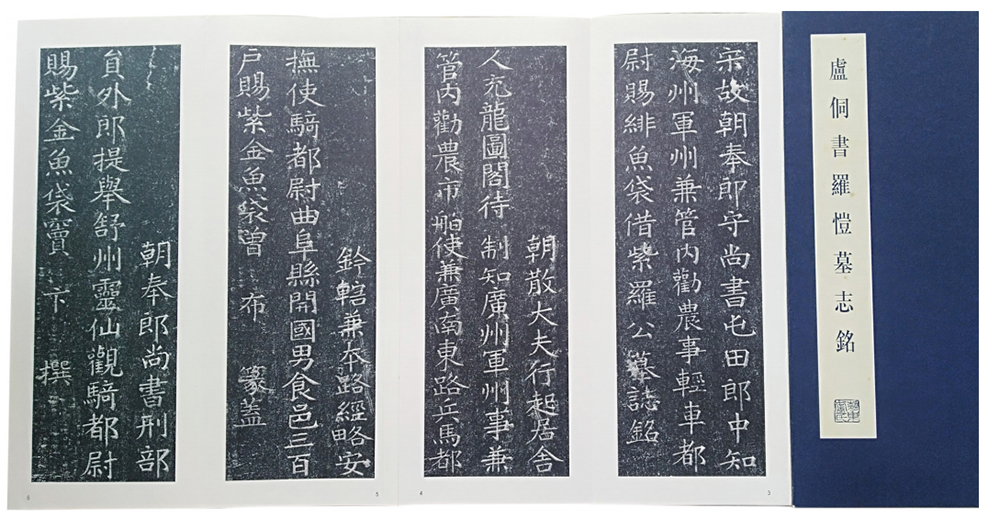 盧侗書羅愷墓志銘
宋故朝奉郎守尚書屯田郎中知
海州軍州兼管内勸農事輕車都
尉賜緋魚袋借紫羅公墓誌銘
朝散大夫行起居舍
人充龍圖閣待 制知廣州軍州事兼
管内勸農市舶使兼廣南東路兵馬都
鈐轄兼本路經略安
撫使騎都尉曲阜縣開國男食邑三百
戶賜紫金魚袋曾 布 篆蓋
朝奉郎尚書刑部
員外郎提舉舒州靈仙觀騎都尉
賜紫金魚袋竇 卞 撰
3
4
5
6